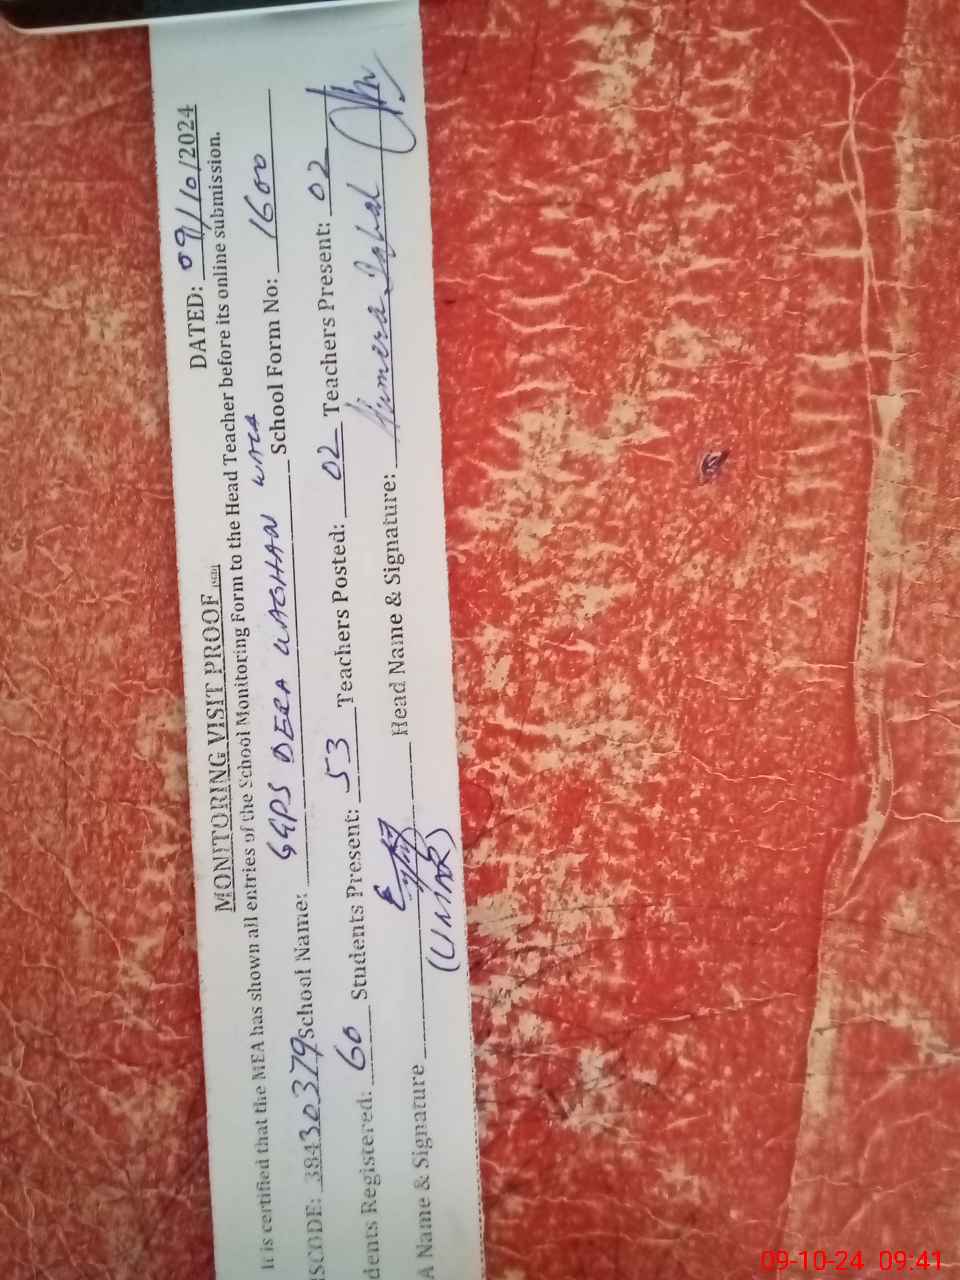 MONITORING VISIT PROOF DATED: 09/10/2024
It is certified that the MEA has shown all entries of the School Monitoring Form to the Head Teacher before its online submission.
SCODE: 39430379 School Name: GGPS DERA WAGHAN WALA School Form No: 1600
dents Registered: 60 Students Present: 53 Teachers Posted: 02 Teachers Present: 02
A Name & Signature (UMAR) Head Name & Signature: Humera Iqbal
09-10-24 09:41